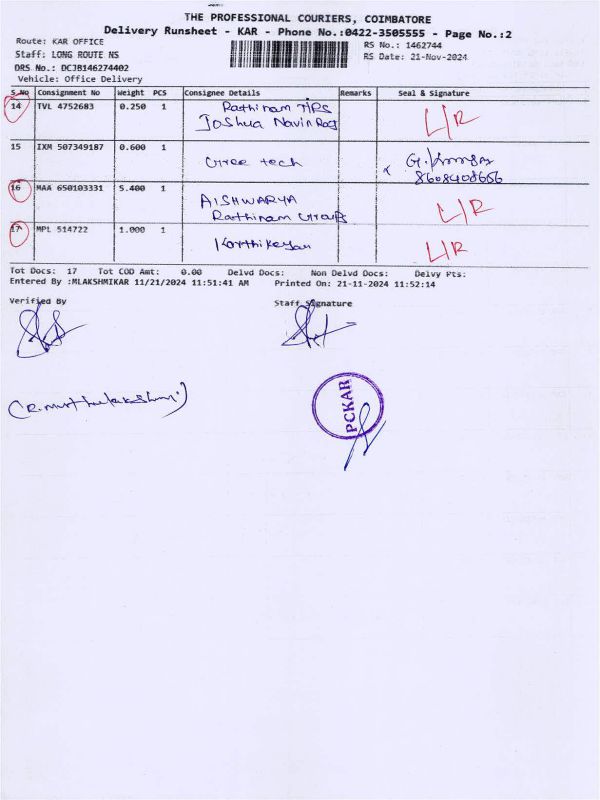 THE PROFESSIONAL COURIERS, COIMBATORE
Delivery Runsheet - KAR - Phone No.:0422-3505555 - Page No.:2
Route: KAR OFFICE
RS No.: 1462744
Staff: LONG ROUTE NS
RS Date: 21-Nov-2024
DRS No.: DCJB146274402
Vehicle: Office Delivery
S.No Consignment No Weight PCS Consignee Details Remarks Seal & Signature
14 TVL 4752683 0.250 1 Rathinam TIPS L/R
Joshua Navin Raj
15 IXM 507349187 0.600 1 Gree tech
8608408656
16 MAA 650103331 5.400 1 AISHWARYA L/R
Rathinam Groups
17 MPL 514722 1.000 1 Karthikeyan L/R
Tot Docs: 17 Tot COD Amt: 0.00 Delvd Docs: Non Delvd Docs: Delvy Pts:
Entered By :MLAKSHMIKAR 11/21/2024 11:51:41 AM Printed On: 21-11-2024 11:52:14
Verified By Staff Signature
(R. Muthulakshmi)
PCKAR